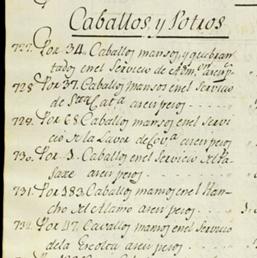 Caballos, y Potros
727. Por 34. Caballos mansos, y quebran-
tados en el Servicio de
728 Por 37. Caballos Mansos en el Servicio
de Sta. Cata. a seis pesos
729. Por 68 Caballos mansos en el Servi-
cio de la Laver de a seis pesos
730. Por 3. Caballos en el Servicio de
a seis pesos
731. Por 183 Caballos mansos en el Ran-
cho del Alamo a seis pesos
732. Por 47. Cavallos mansos en el Servicio
de la Escolta a seis pesos